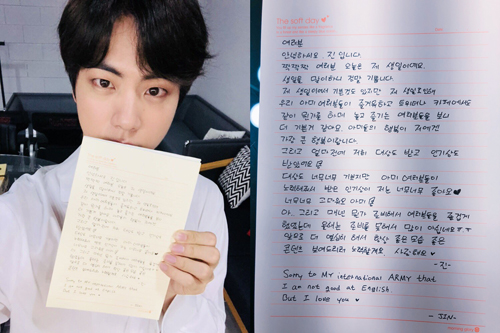 The soft day
여러분
안녕하세요 진 입니다.
짝짝짝 여러분 오늘은 저 생일이에요.
생일을 맞이하니 정말 기쁩니다.
저 생일이여서 기쁜것도 있지만 저 생일로인해
우리 아미 여러분들이 즐거워하고 트위터나 카페에서도
같이 뭔가를 하며 놀고 즐기는 여러분들을 보니
더 기쁜거 같아요. 아미들의 행복이 저에겐
가장 큰 행복이랍니다.
그리고 얼마전에 저희 대상도 받고 인기상도
받았어요
대상도 너무너무 기쁘지만 아미 여러분들이
노력해줘서 받은 인기상이 저는 너무너무 좋아요♥
너무너무 고마워요 아미
아. 그리고 매년 뭔가 준비해서 여러분들을 즐겁게
했었는데 올해는 준비를 못해서 맘이 아팠네요ㅠㅠ
앞으로 더 열심히 해서 항상 좋은 모습 좋은
콘텐츠 보여드리려 노력할게요. 사랑해요♥
-진-
Sorry to MY international ARMY that
I am not good at English
But I love you ♥
-JIN-